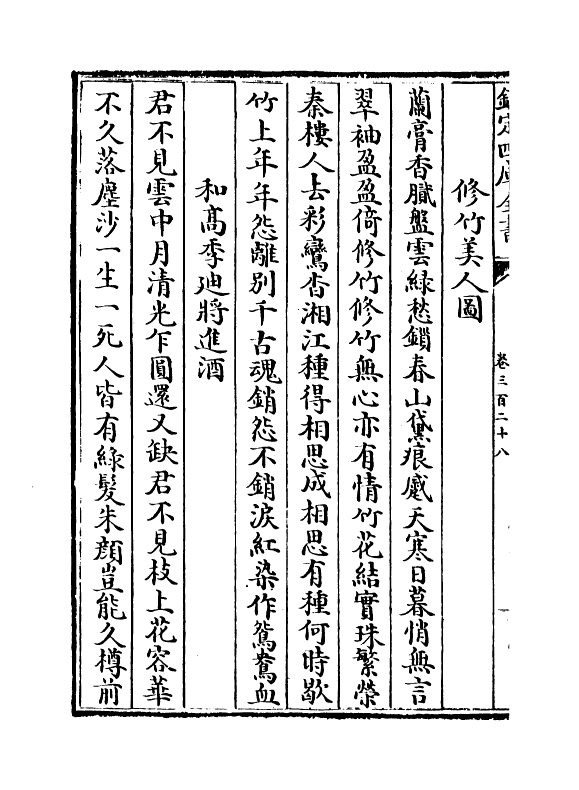 欽定四庫全書
卷三百二十八
修竹美人圖
蘭膏香膩盤雲綠愁鎖春山黛痕蹙天寒日暮悄無言
翠袖盈盈倚修竹修竹無心亦有情竹花結實珠繁榮
秦樓人去彩鸞杳湘江種得相思成相思有種何時歇
竹上年年怨離别千古魂銷怨不銷淚紅染作鴛鴦血
和髙季迪將進酒
君不見雲中月清光乍圓還又缺君不見枝上花容華
不久落塵沙一生一死人皆有緑髪朱顔豈能久樽前